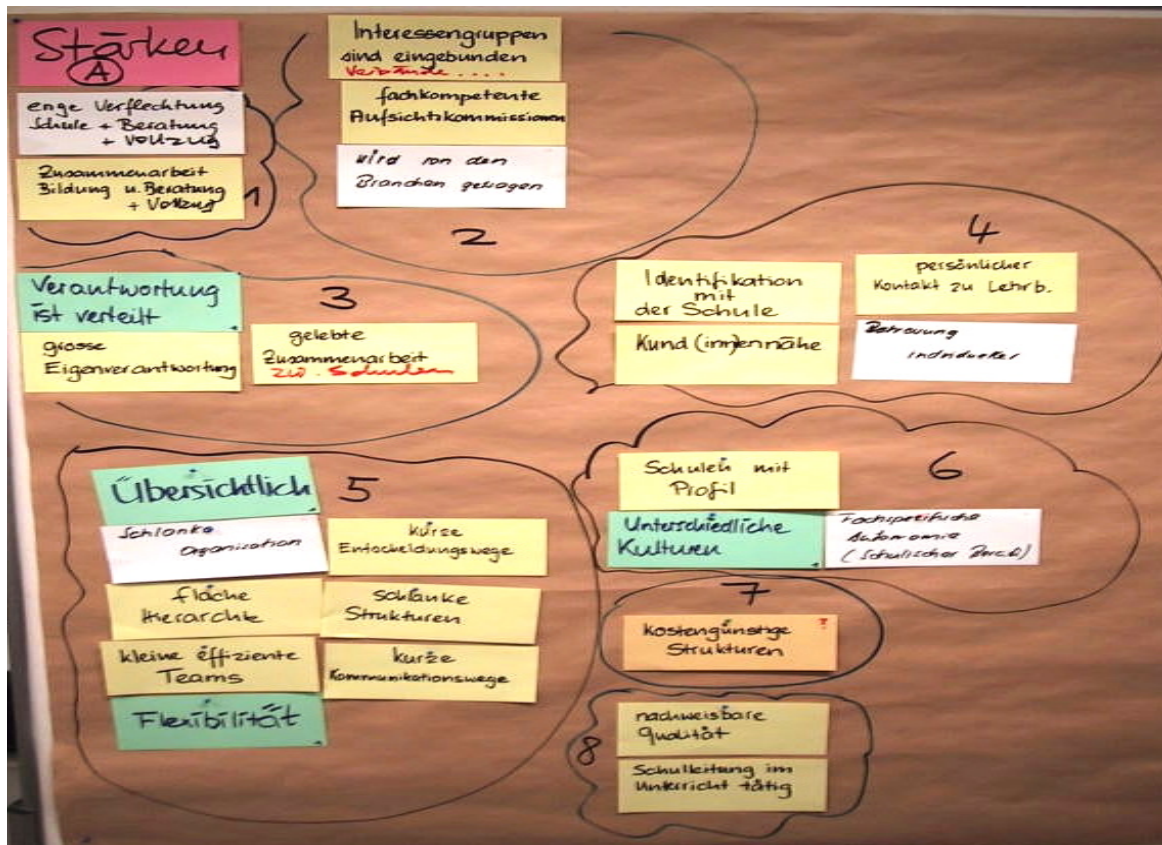 Stärken
A
enge Verflechtung
Schule + Beratung
+ Vollzug
Zusammenarbeit
Bildung u. Beratung
+ Vollzug
1
Interessengruppen
sind eingebunden
Verbände ....
fachkompetente
Aufsichtskommissionen
wird von den
Branchen getragen
2
Verantwortung
ist verteilt
grosse
Eigenverantwortung
3
gelebte
Zusammenarbeit
zw. Schulen
4
Identifikation
mit
der Schule
persönlicher
Kontakt zu Lehrb.
Kund(inn)ennähe
Betreuung
individuell
5
Übersichtlich
Schlanke
Organisation
kurze
Entscheidungswege
flache
Hierarchie
schlanke
Strukturen
kleine effiziente
Teams
kurze
Kommunikationswege
Flexibilität
6
Schulen mit
Profil
Unterschiedliche
Kulturen
Fachspezifische
Autonomie
(Schulischer Bereich)
7
kostengünstige ?
Strukturen
8
nachweisbare
Qualität
Schulleitung im
Unterricht tätig